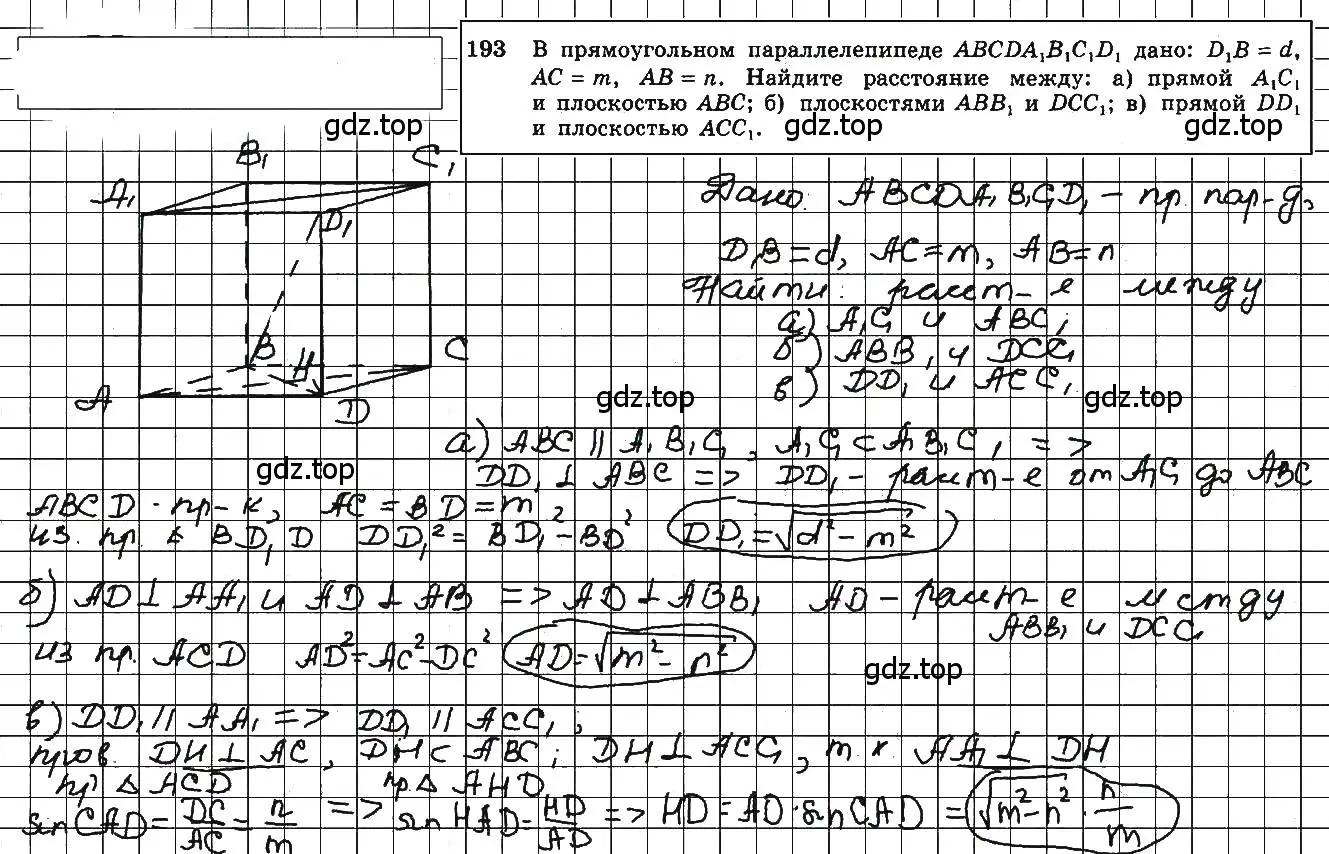 193 В прямоугольном параллелепипеде ABCDA₁B₁C₁D₁ дано: D₁B = d,
AC = m, AB = n. Найдите расстояние между: а) прямой A₁C₁
и плоскостью ABC; б) плоскостями ABB₁ и DCC₁; в) прямой DD₁
и плоскостью ACC₁.
gdz.top
gdz.top
B₁
C₁
A₁
D₁
B
H
C
A
D
Дано: ABCDA₁B₁C₁D₁ – пр. пар-д,
D₁B = d, AC = m, AB = n
Найти: расст-е между
а) A₁C₁ и ABC;
б) ABB₁ и DCC₁
в) DD₁ и ACC₁.
gdz.top
gdz.top
а) ABC || A₁B₁C₁, A₁C₁ ⊂ A₁B₁C₁ =>
gdz.top
DD₁ ⊥ ABC => DD₁ – расст-е от A₁C₁ до ABC
ABCD - пр-к, AC = BD = m
из пр. Δ BD₁D DD₁² = BD₁² – BD² DD₁ = √(d² – m²)
б) AD ⊥ AA₁ и AD ⊥ AB => AD ⊥ ABB₁ AD – расст-е между
ABB₁ и DCC₁
из пр. ACD AD² = AC² – DC² AD = √(m² – n²)
gdz.top
в) DD₁ || AA₁ => DD₁ || ACC₁;
пров. DH ⊥ AC, DH ⊂ ABC; DH ⊥ ACC₁, т.к. AA₁ ⊥ DH
пр Δ ACD пр Δ AHD
sin CAD = DC/AC = n/m => sin HAD = HD/AD => HD = AD · sin CAD = √(m² – n²) · n/m